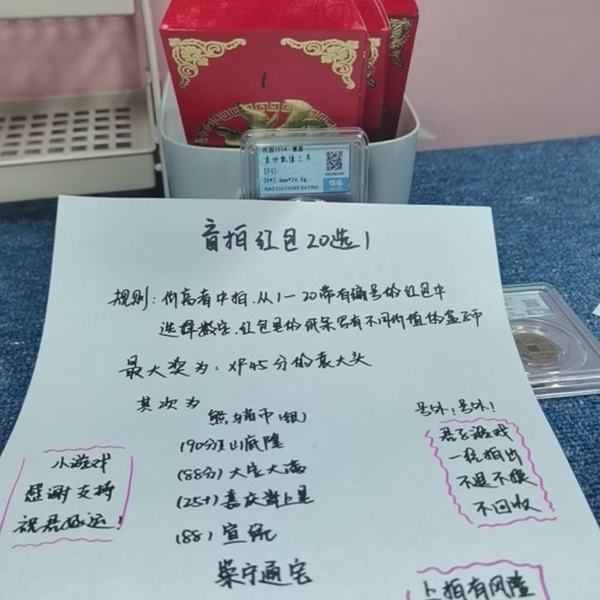 1
民国1914-壹圆
袁世凯像三年
XF45
39*2.4mm*26.8g
BAO CUI COINS RATING
盲拍红包20选1
规则：价高者中拍．从1—20带有编号的红包中
选择数字．红包里的纸条写有不同价值的盒子币
最大奖为：XF45分的袁大头
其次为
熊猫币(银)
号外！号外！
(90分)山底隆
(88分)大定大满
(88)宣统
崇宁通宝
小游戏
感谢支持
祝君好运！
君子游戏
一经拍出
不退不换
不回收
上拍有风险